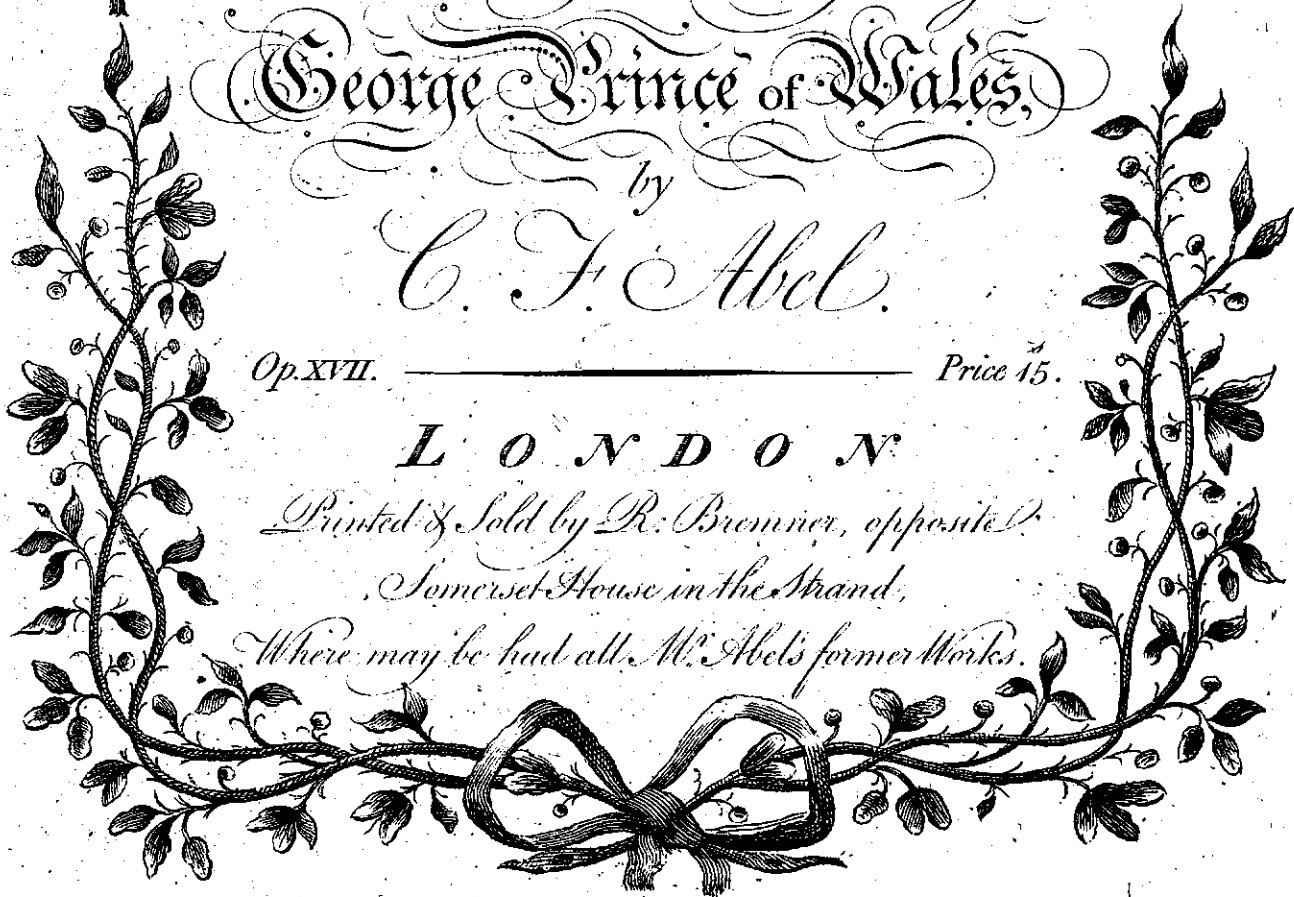 George Prince of Wales,
by
C. F. Abel.
Op. XVII. Price 15.s
LONDON
Printed & Sold by R: Bremner, opposite
Somerset House in the Strand,
Where may be had all Mr. Abel's former Works.